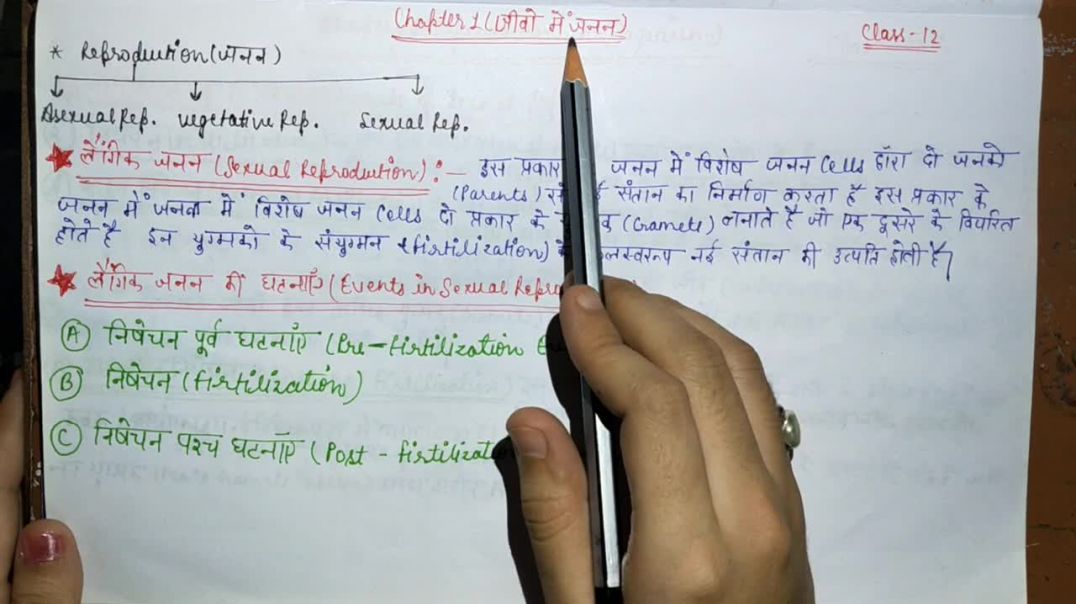 Chapter 1 (जीवो में जनन)
Class - 12
* Reproduction (जनन)
Asexual Rep. vegetative Rep. Sexual Rep.
लैंगिक जनन (Sexual Reproduction) : - इस प्रकार जनन में विशेष जनन Cells द्वारा दो जनको
(Parents) संतान का निर्माण करता है इस प्रकार के
जनन में जनक में विशेष जनन Cells दो प्रकार के (Gramete) बनाते है जो एक दूसरे के विपरित
होते है इन युग्मको के संयुग्मन (firtilization) नई संतान की उत्पति होती है।
लैंगिक जनन की घटनाएँ (Events in Sexual Repro
A निषेचन पूर्व घटनाएँ (Pre - firtilization
B निषेचन (firtilization)
C निषेचन पश्च घटनाएँ (Post - firtilizat